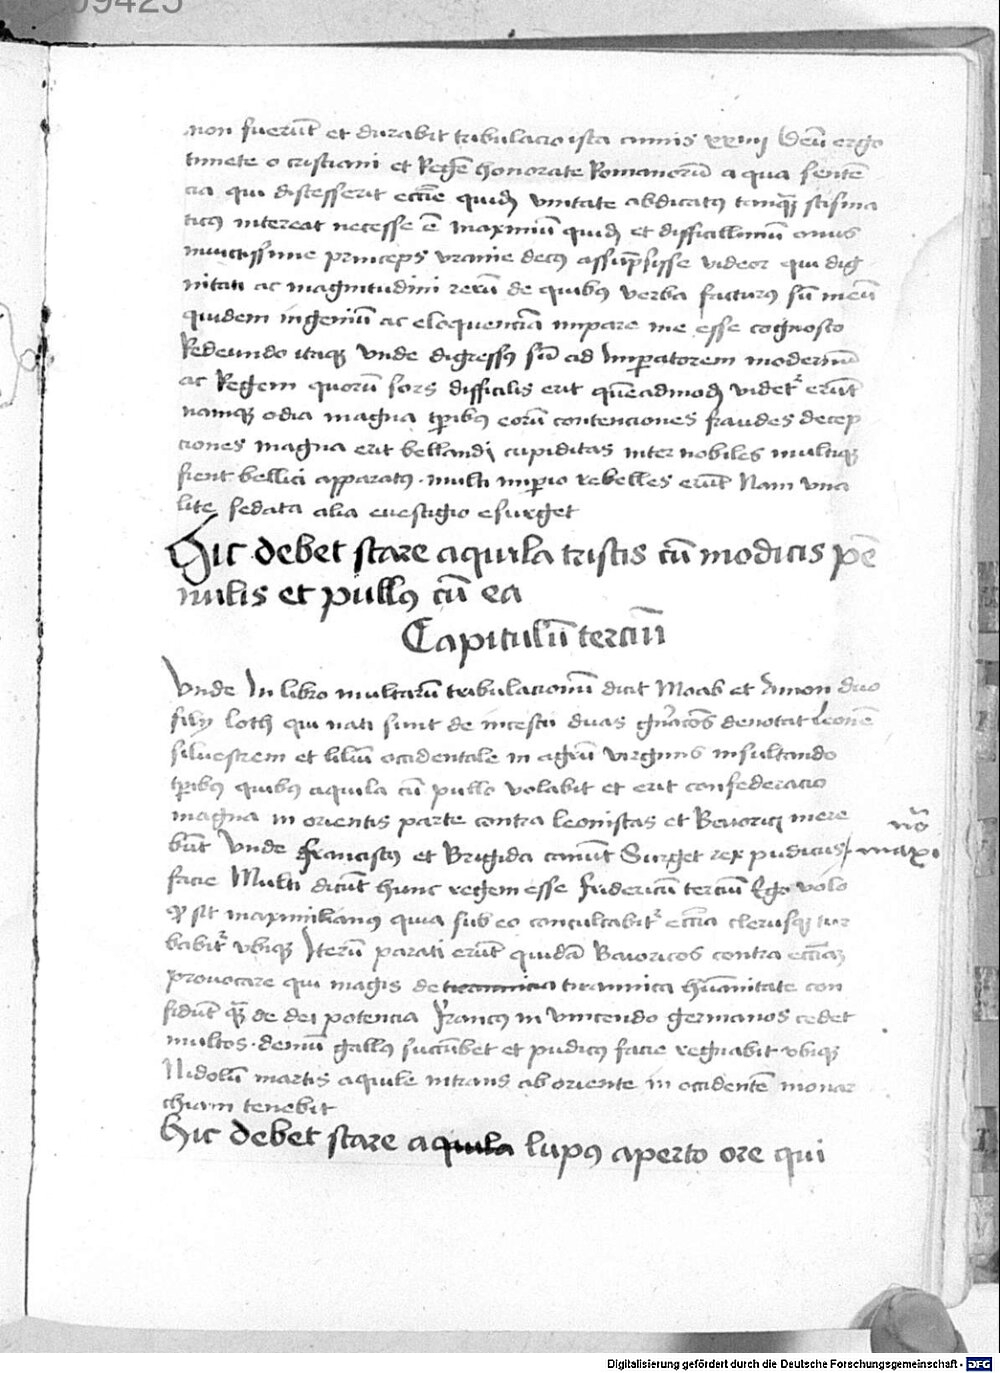 09425
non fuerūt et durabit tribulacio ista annis xxiiij Deū ergo
timete o cristiani et Regē honorate Romanorū a qua senten
cia qui discesserit eccīe quidē vnitate abdicatꝯ tamqᷓ scisma
ticꝯ intereat necesse ē Maximū quidē et difficillimū onus
inuictissime princeps vranie decꝯ assūpsisse videor qui dig
nitati ac magnitudini rerū de quibꝯ verba facturꝯ sū meū
quidem ingeniū ac eloquenciā impare me esse cognosco
Redeundo itaqꝫ vnde digressꝯ sū ad Imꝑatorem modernū
ac Regem quorū sors difficilis erit quēadmodū videtʳ erūt
namqꝫ odia magna tꝑibꝯ eorū contenciones fraudes decep
ciones magna erit bellandi cupiditas inter nobiles multiqꝫ
fient bellici apparatꝯ multi imꝑio rebelles erūt Nam vna
lite sedata alia euestigio esurget
Hic debet stare aquila tristis cū modicis pē
nulis et pullꝯ cū ea
Capitulū terciū
Vnde In libro multarū tribulacionū dicit Moab et Amon duo
filij loth qui nati sunt de incestu duas gn̄acōes denotat Leonē
siluestrem et liliū occidentale in agrū virginis insultando
tꝑibꝯ quibꝯ aquila cū pullo volabit et erit confederacio
magna in orientis parte contra leonistas et Bauorici mere
būt Vnde Franciscꝯ et Brigida canūt Surget rex pudicus
facie Multi dicūt hunc regem esse Fridericū terciū Ego volo
ꝙ sit maximilianꝯ quia sub eo conculcabitʳ eccīa clerusqꝫ tur
babitʳ vbiqꝫ Iterū parati erūt quidā Bauoricos contra eccīaꝫ
prouocare qui magis de tirannica hūanitate con
fidūt qᷓꝫ de dei potencia Francꝯ in vincendo germanos cedet
multos demū gallꝯ sucūbet et pudicꝯ facie regnabit vbiqꝫ
Nidolū martis aquile intrans ab oriente in occidentē monar
chiam tenebit
Hic debet stare aquila lupꝯ aperto ore qui
Digitalisierung gefördert durch die Deutsche Forschungsgemeinschaft - DFG